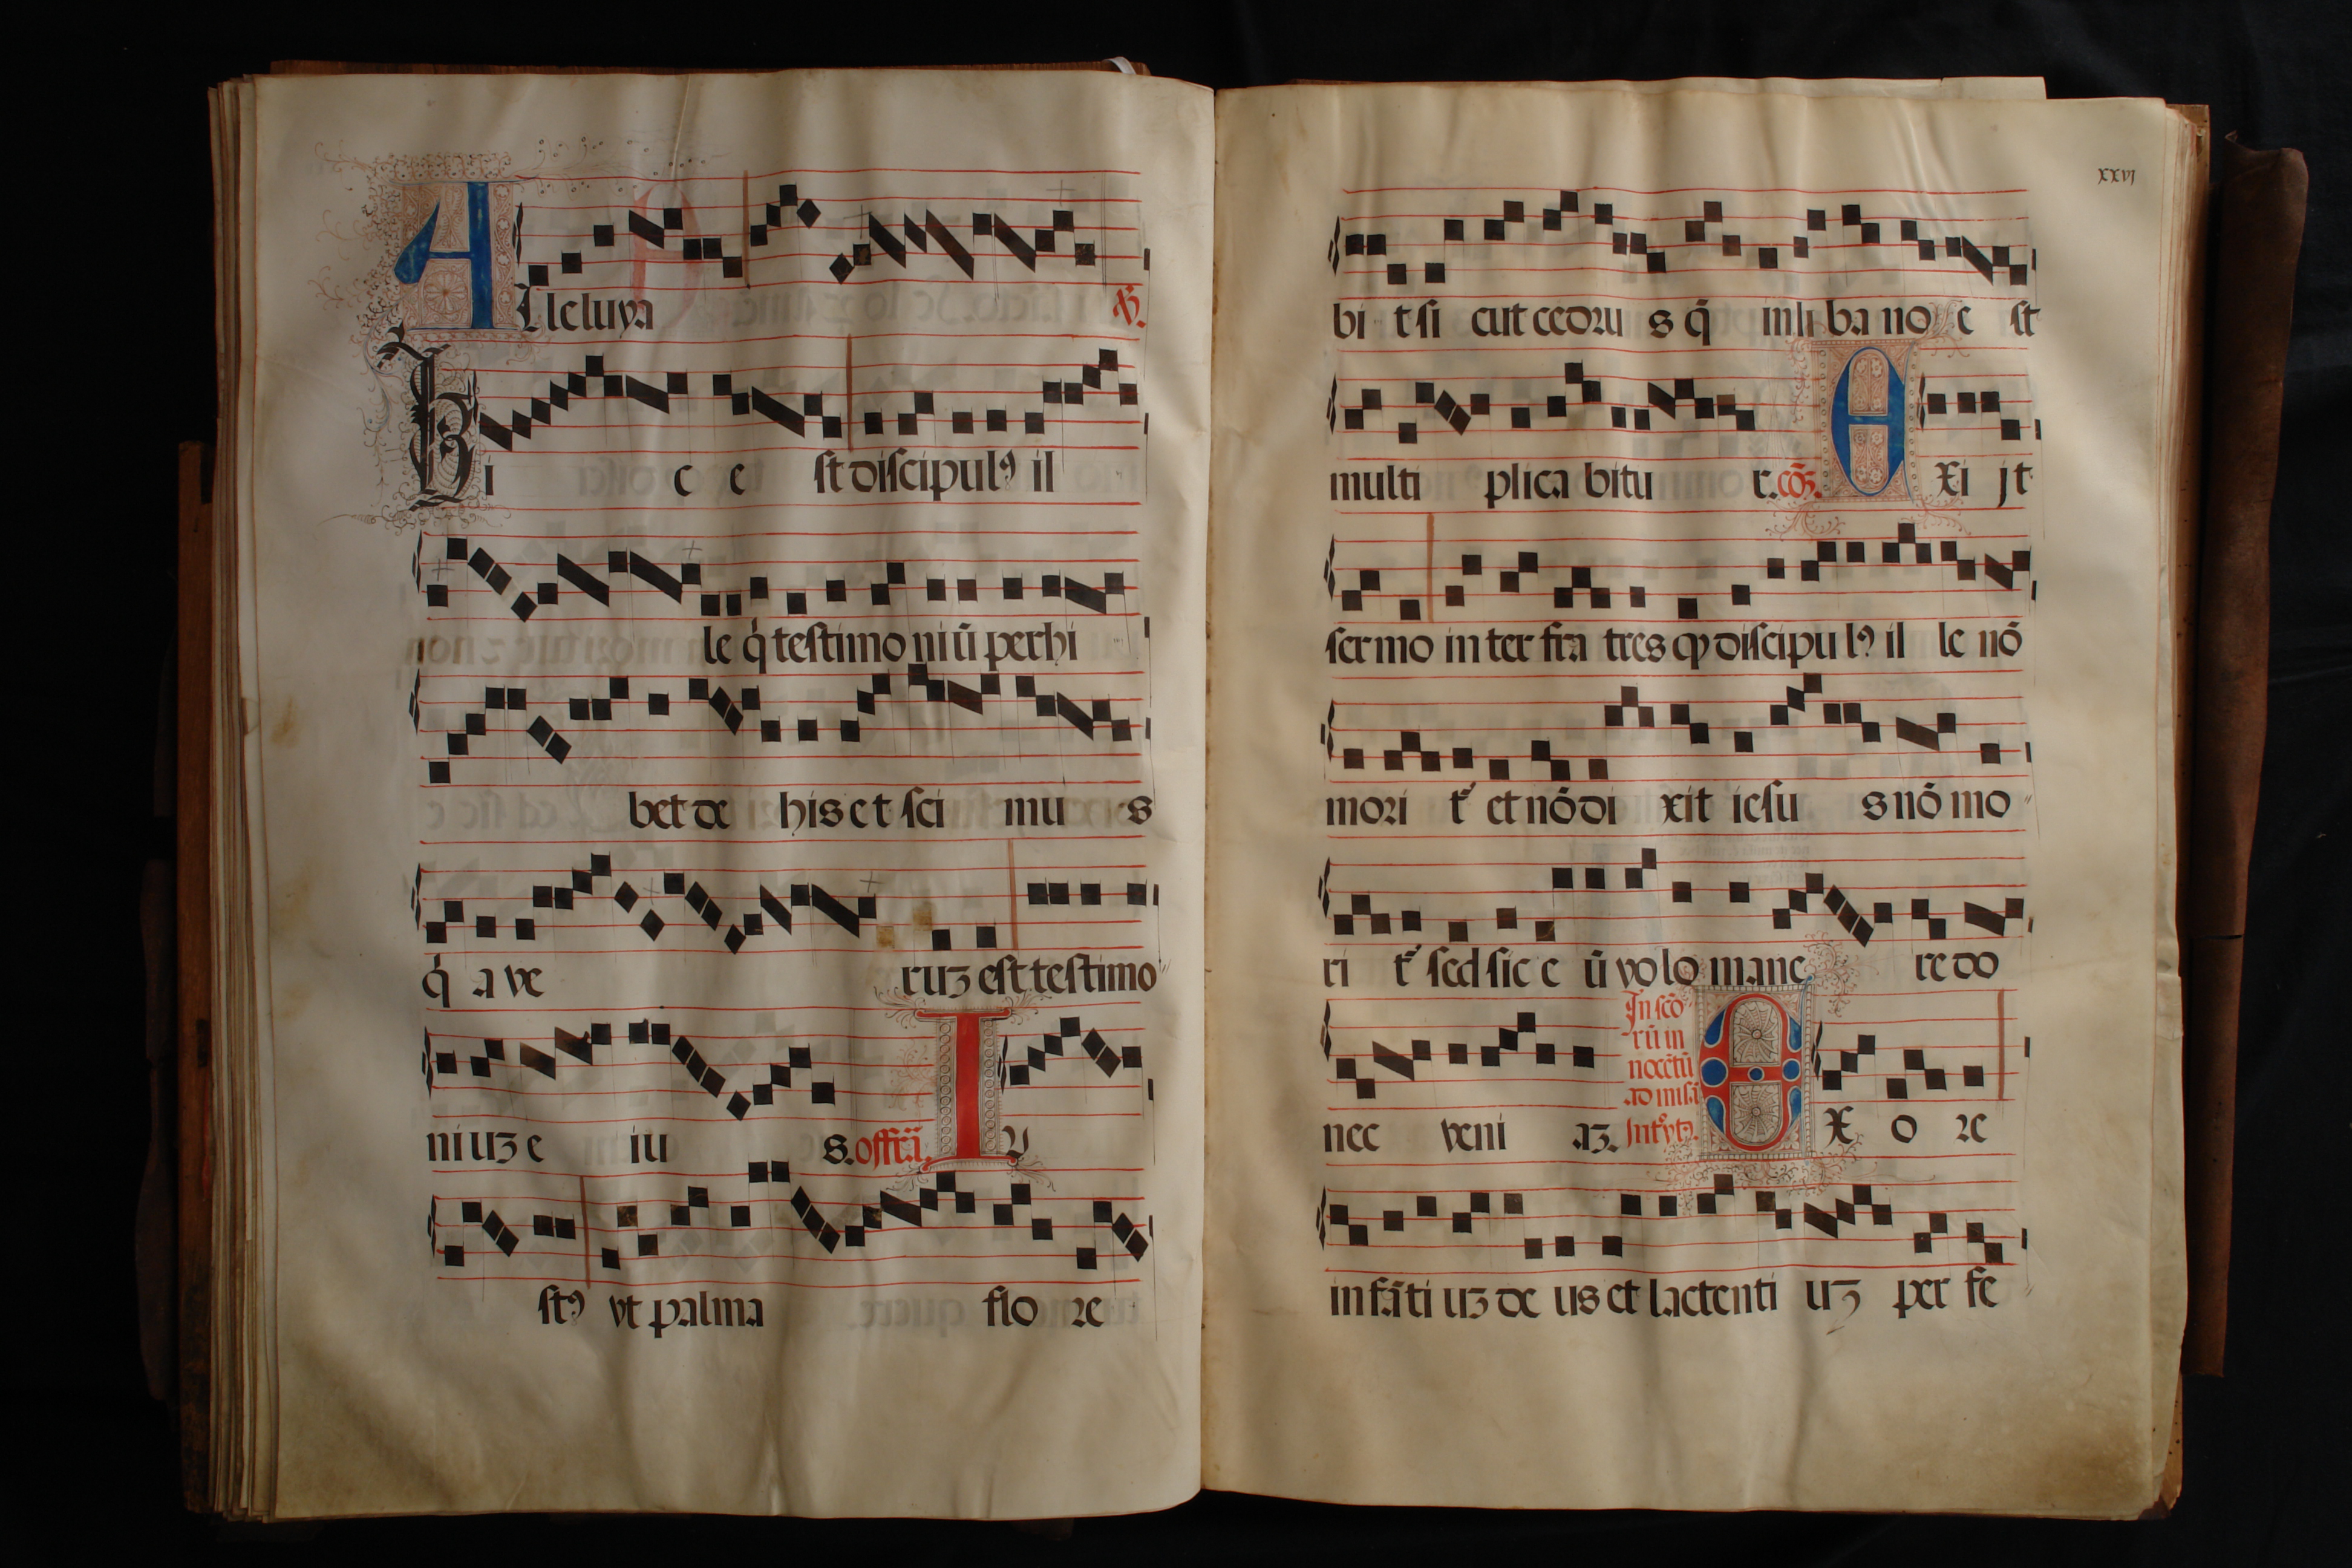 Alleluya ℣.
Hi c e st discipulꝯ il
le q̇ testimo niū perhi
bet de his et sci mu s
q̇ a ve ruꝫ est testimo
niuꝫ e iu s. offr̄a. I u
stꝯ vt palma flo re
xxvj
bi t si cut cedru s q̄ in li ba no e st
multi plica bitu r. cōꝫ. E xi jt
sermo in ter fra tres qꝫ discipu lꝯ il le nō
mori t᷑ et nō di xit iesu s nō mo
ri t᷑ sed sic e ū volo mane re do
nec veni aꝫ.
In sc̄o
rū in
nocc̄tū
ad misā
Introytꝯ.
E x o re
in fāti uꝫ de us et lactenti uꝫ per fe